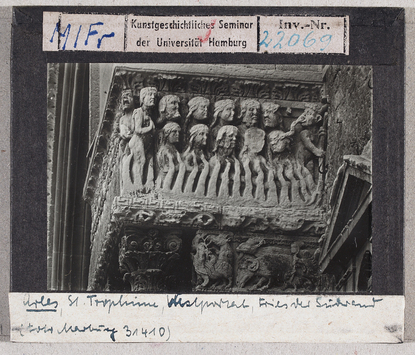 M/Fr
Kunstgeschichtliches Seminar
der Universität Hamburg
Inv.-Nr.
22069
Arles, St. Trophime, Westportal, Fries der Südwand
(Foto Marburg 31410)